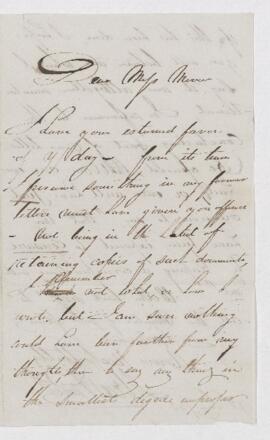 Dear Miss
I have your esteemed favor
of Yday - from its tenor
I presume something in my former
letter must have given you offence
- Not being in the habit of
retaining copies of such documents,
I remember not what or how I
wrote, but I am sure nothing
could have been further from my
thoughts, than to say any thing in
the smallest degree improper